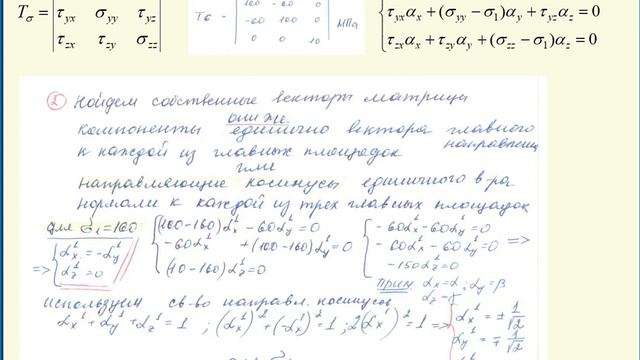 Tσ = | τyx σyy τyz |
| τzx τzy σzz |
Tσ = | 100 -60 0 |
| -60 100 0 | МПа
| 0 0 10 |
τyxαx + (σyy − σ1)αy + τyzαz = 0
τzxαx + τzyαy + (σzz − σ1)αz = 0
② Найдем собственные векторы матрицы
они же
компоненты единично вектора главного
направления
к каждой из главных площадок
или
направляющие косинусы единичного в-ра
нормали к каждой из трех главных площадок
для σ1 = 160
(100-160)αx¹ - 60αy¹ = 0
-60αx¹ + (100-160)αy¹ = 0
(10-160)αz¹ = 0
-60αx¹ - 60αy¹ = 0
-60αx¹ - 60αy¹ = 0 =>
-150αz¹ = 0
=> αx¹ = -αy¹
αz¹ = 0
αx = α ; αy = β
используем св-во направл. косинусов
αx¹ + αy¹ + αz¹ = 1 ; (αx¹)² + (-αx¹)² = 1 ; 2(αx¹)² = 1 =>
αx¹ = ± 1/√2
αy¹ = ∓ 1/√2